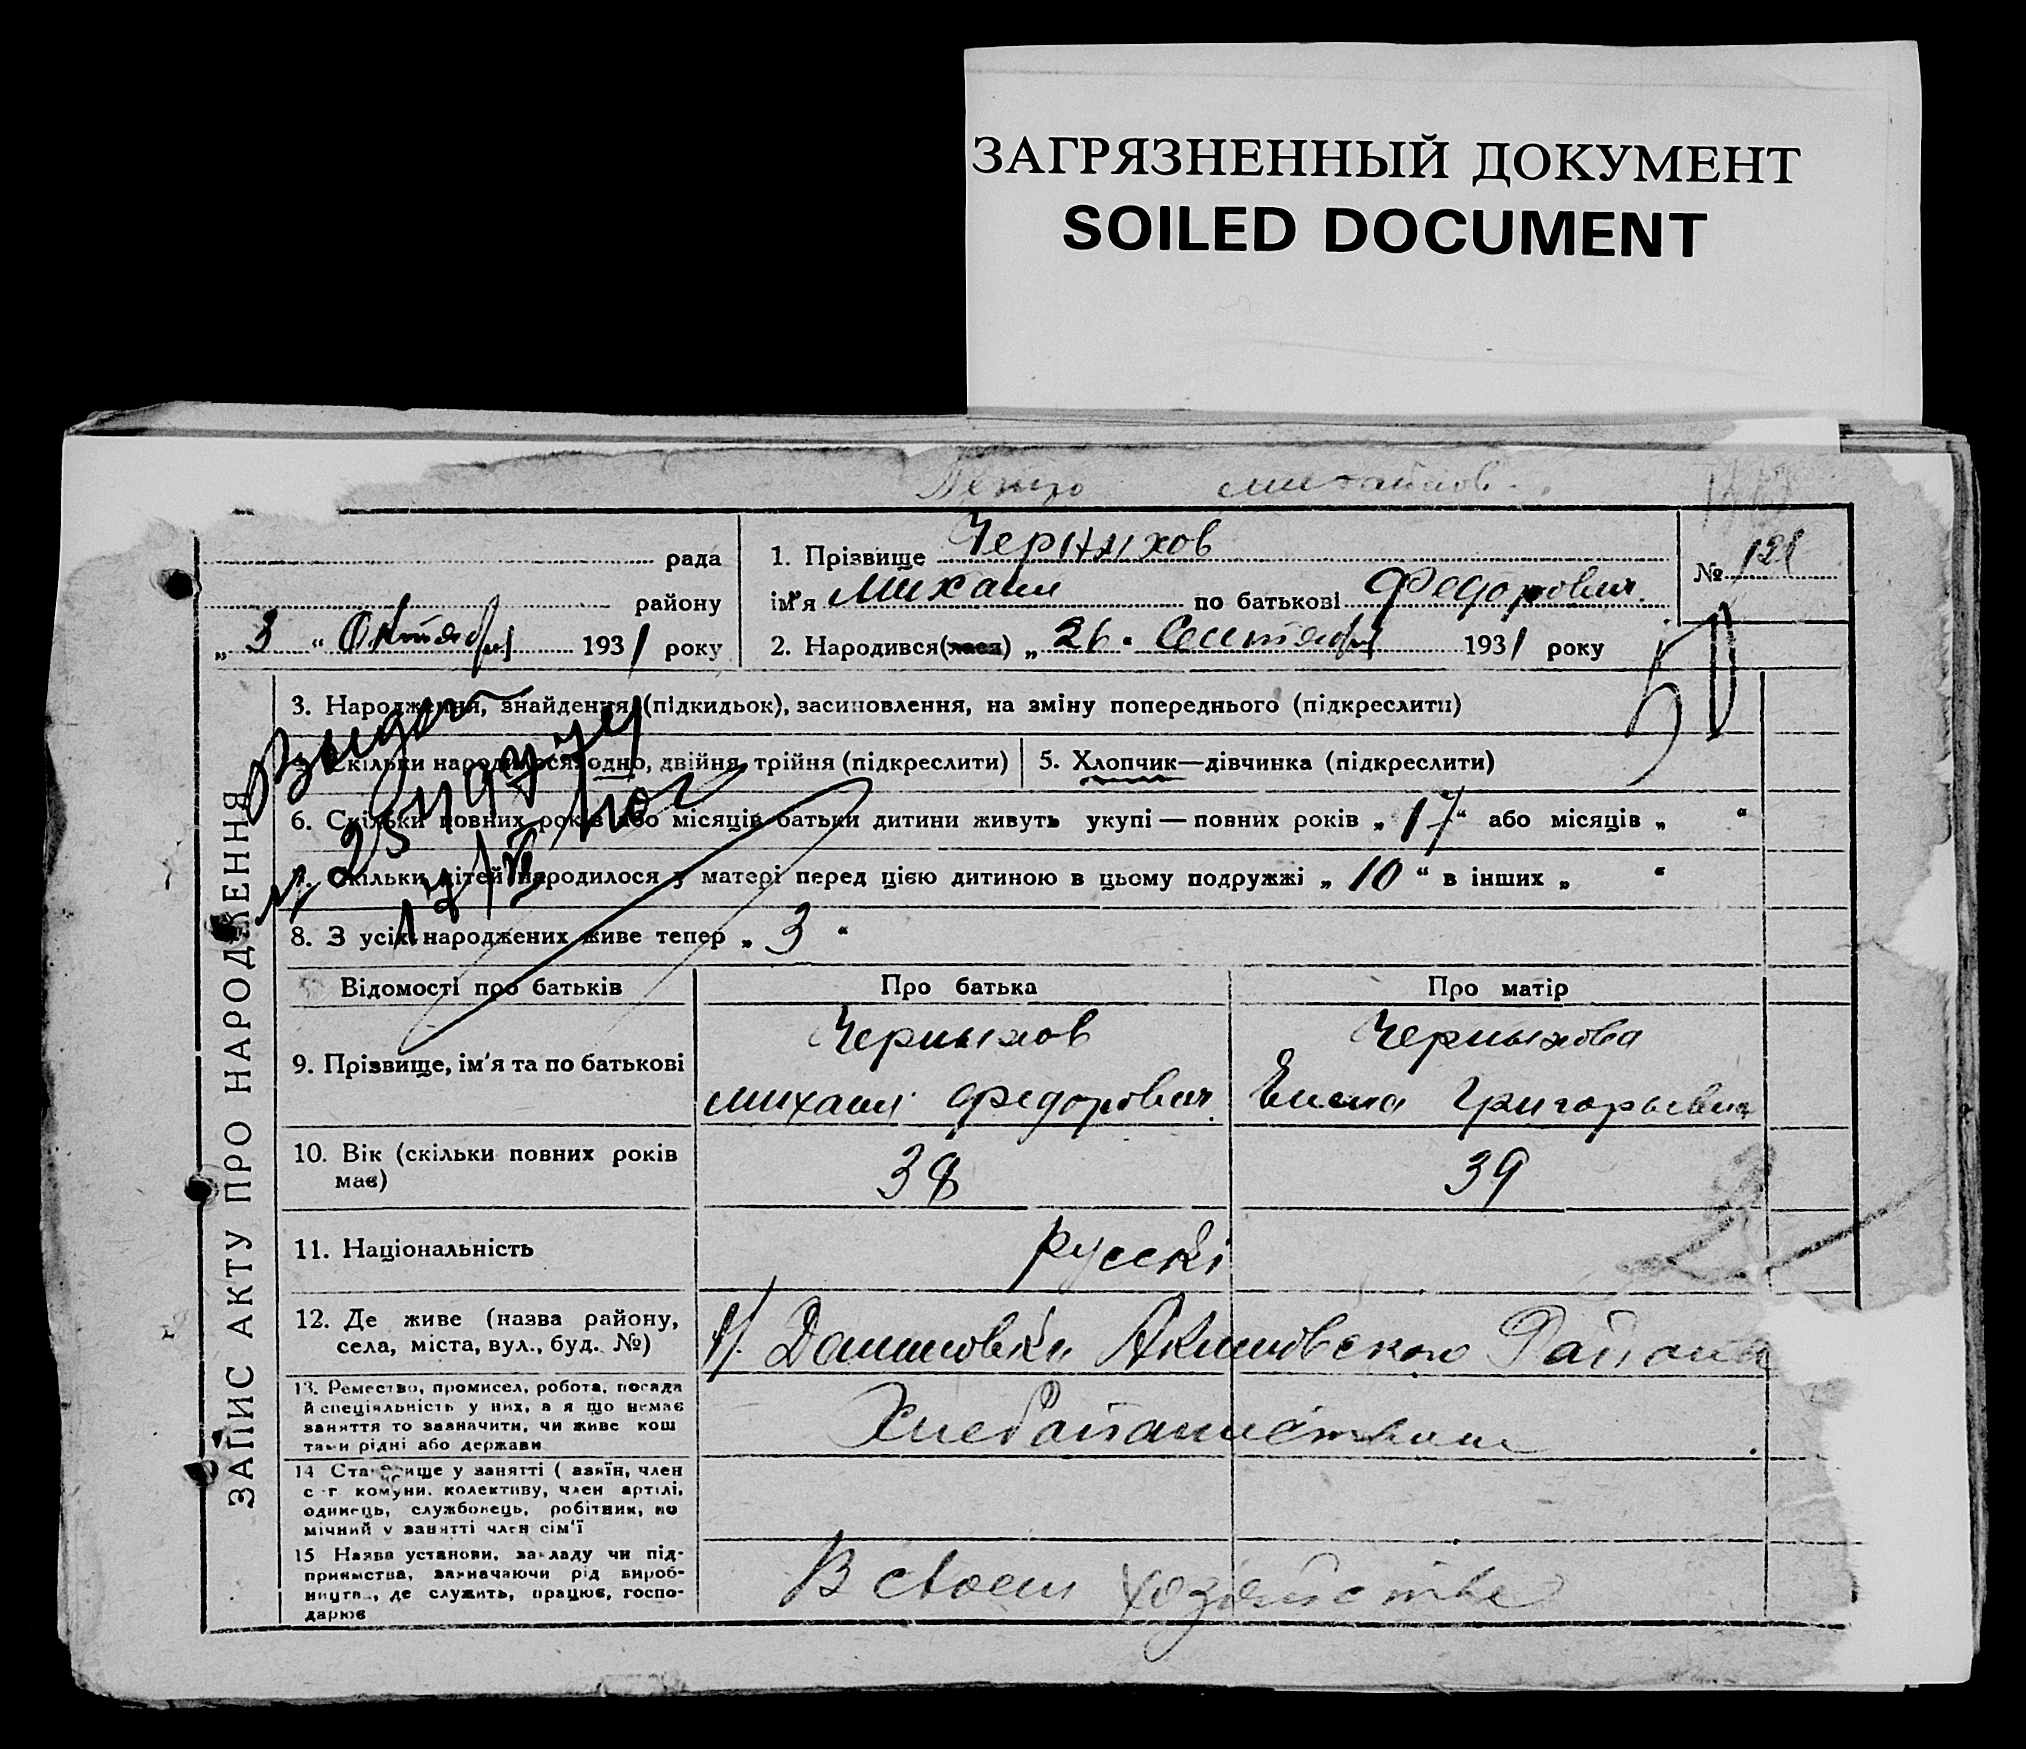 ЗАГРЯЗНЕННЫЙ ДОКУМЕНТ
SOILED DOCUMENT
Петро михайлов.
рада
району
„ 3 “ Октября 1931 року
1. Прізвище Черныхов
ім'я Михаил по батькові Федорович
2. Народився(лася) „ 26 “ Сентября 1931 року
№ 121
50
ЗАПИС АКТУ ПРО НАРОДЖЕННЯ
3. Народження, знайдення (підкидьок), засиновлення, на зміну попереднього (підкреслити)
Скільки народилося: одно, двійня, трійня (підкреслити)
5. Хлопчик—дівчинка (підкреслити)
6. Скільки повних років або місяців батьки дитини живуть укупі — повних років „ 17 “ або місяців „ “
Скільки дітей народилося у матері перед цією дитиною в цьому подружжі „ 10 “ в інших „ “
8. З усіх народжених живе тепер „ 3 “
Відомості про батьків Про батька Про матір
9. Прізвище, ім'я та по батькові
Черныхов
Михаил Федорович
Черныхова
Елена Григорьевна
10. Вік (скільки повних років має)
38 39
11. Національність
русскі
12. Де живе (назва району,
села, міста, вул., буд. №)
Н. Даниловка Акимовского Района
13. Ремество, промисел, робота, посада
й спеціяльність у них, а я що немає
заняття то зазначити, чи живе кош
тами рідні або держави
Хлебопашеством
14 Становище у занятті ( азяїн, член
с-г комуни, колективу, член артілі,
одинець, службовець, робітник, по
мічний у занятті член сім'ї
15 Назва установи, закладу чи під-
приємства, зазначаючи рід вироб-
ництва, де служить, працює, госпо-
дарює
В своем хозяйстве